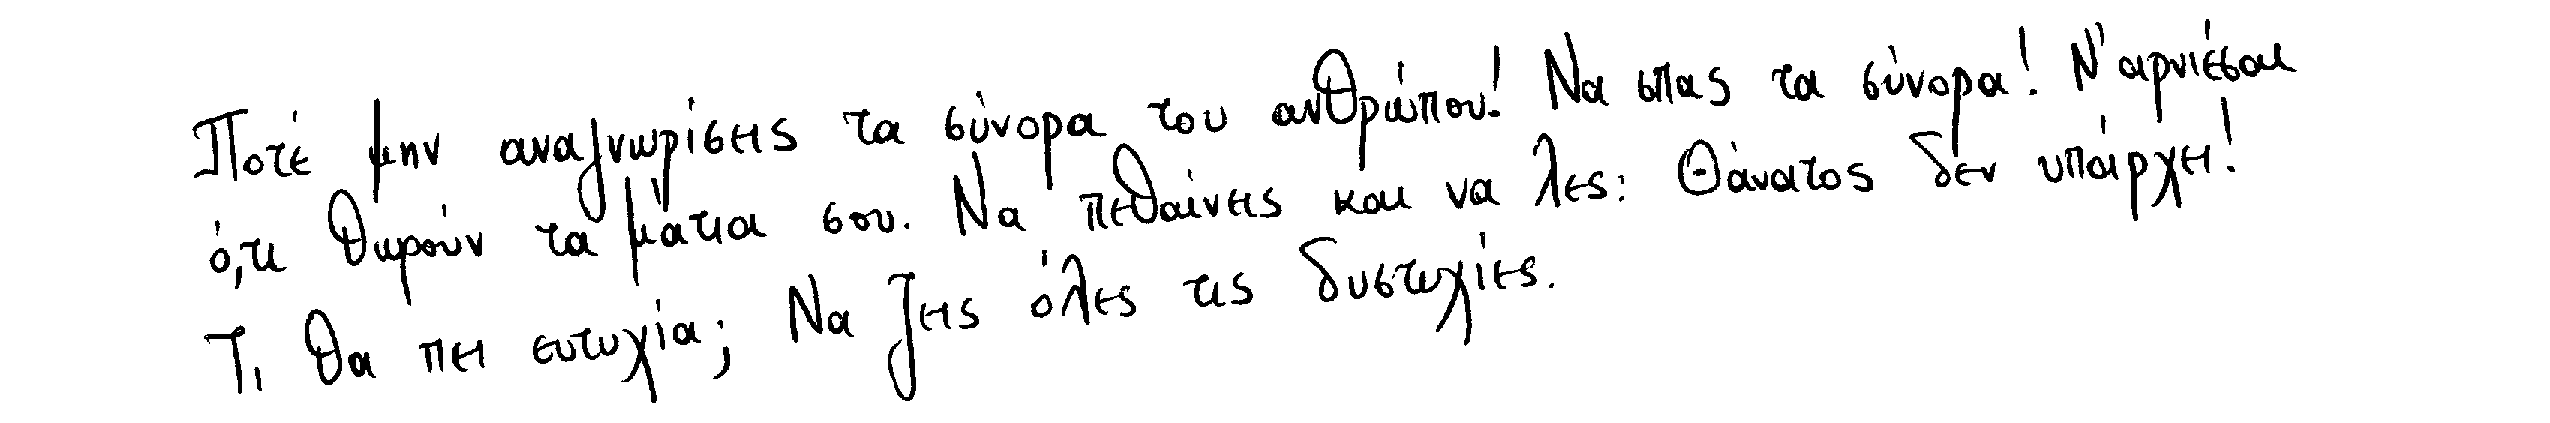 Ποτέ μην αναγνωρίσεις τα σύνορα του ανθρώπου! Να σπας τα σύνορα! Ν' αρνιέσαι
ό,τι θωρούν τα μάτια σου. Να πεθαίνεις και να λες: Θάνατος δεν υπάρχει!
Τι θα πει ευτυχία; Να ζεις όλες τις δυστυχίες.